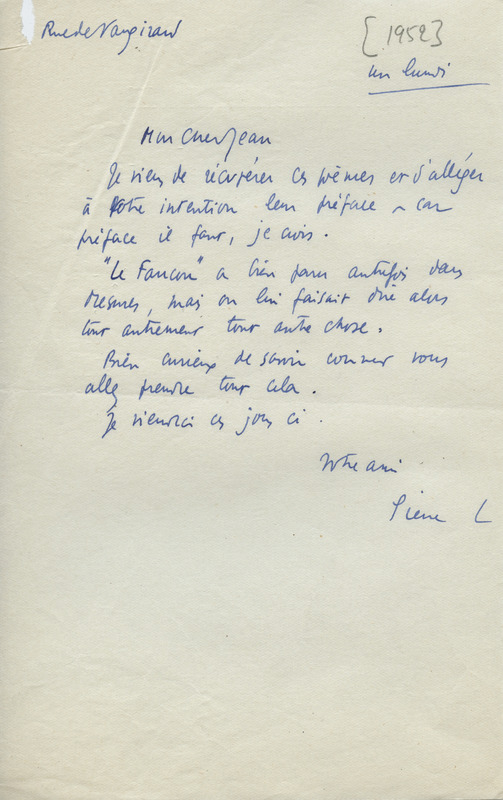 Rue de Vaugirard
[1952]
un lundi
Mon cher Jean
Je viens de récupérer ces poèmes et d'alléger
à votre intention leur préface ~ car
préface il faut, je crois.
"Le Faucon" a bien paru autrefois dans
Mesures, mais on lui faisait dire alors
tout autrement tout autre chose.
Bien curieux de savoir comment vous
allez prendre tout cela.
Je viendrai ces jours ci.
Votre ami
Pierre L